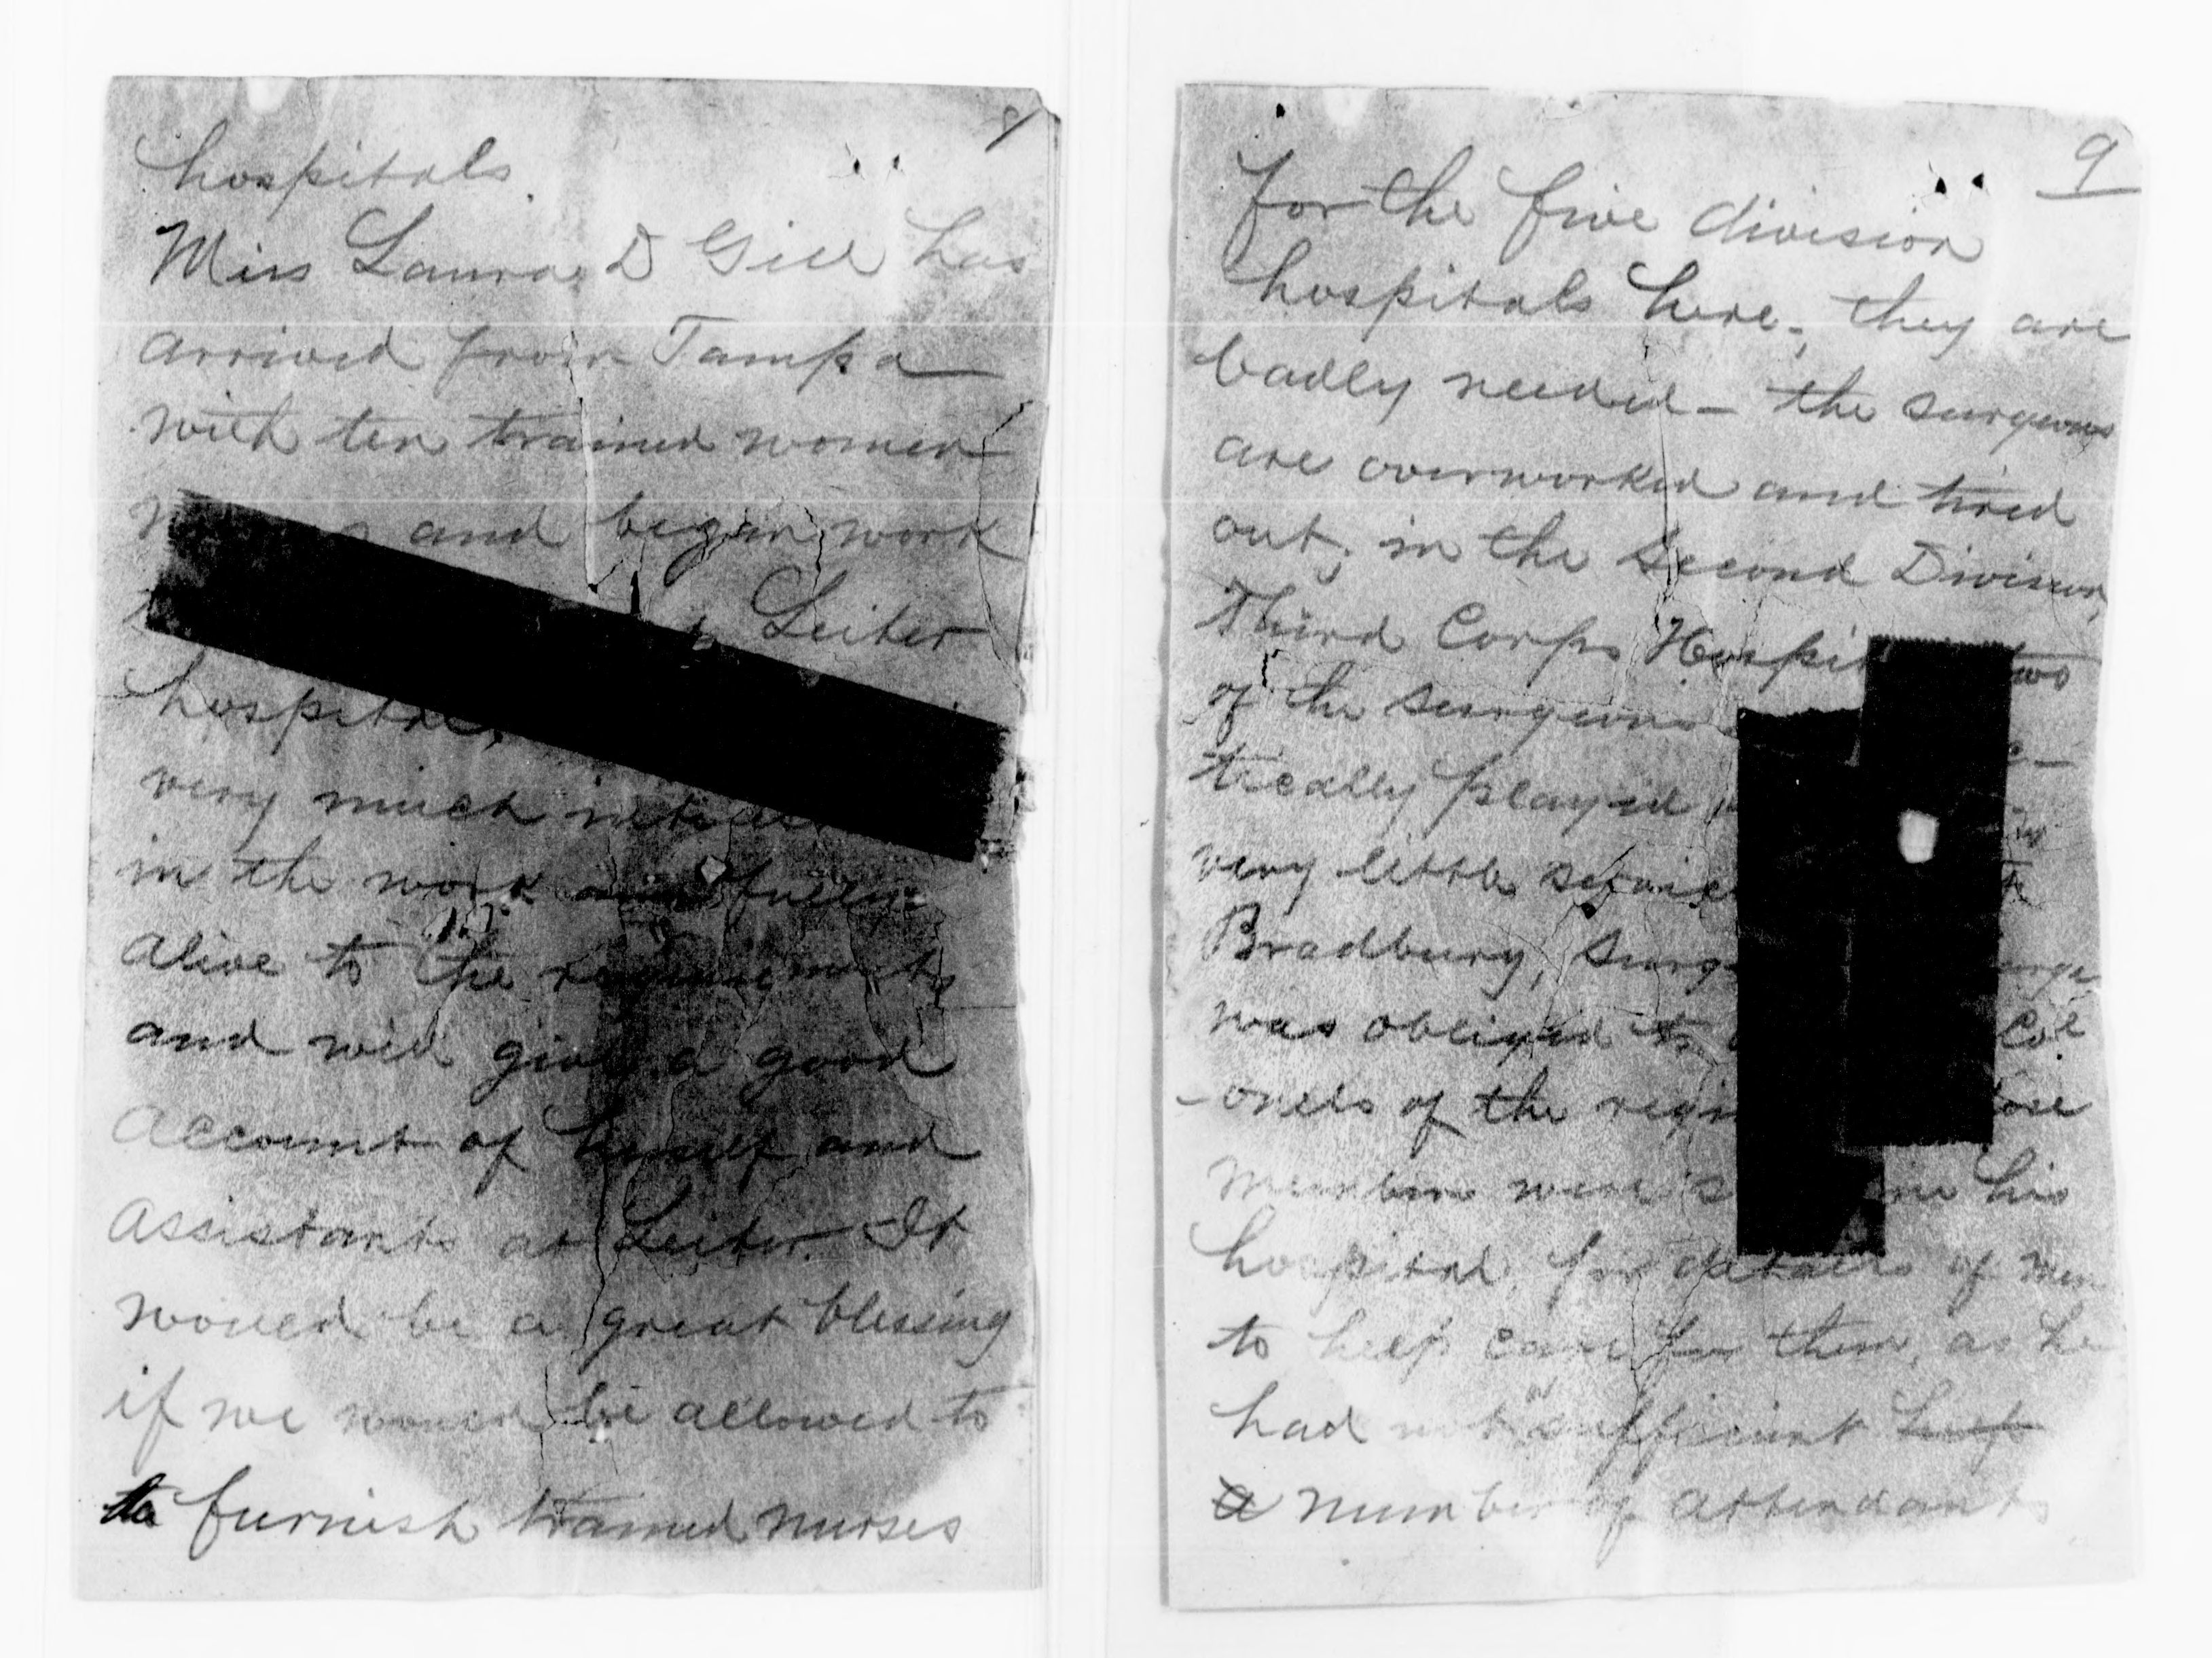 8
hospitals.
Miss Laura D Gill has
arrived from Tampa
with ten trained women
and began work
Leiter
hospital,
very much
in the work and fully
alive to the requirements
and will give a good
account of herself and
assistants at Leiter. It
would be a great blessing
if we would be allowed to
to furnish trained nurses
9
for the five division
hospitals here, they are
badly needed - the surgeons
are overworked and tired
out, in the Second Division,
Third Corps two
of the surgeons
tically played
very little service
Bradbury,
was obliged to Col
-onels of the
members were his
hospital, for details of men
to help care for them, as he
had not sufficient help
a number of attendants